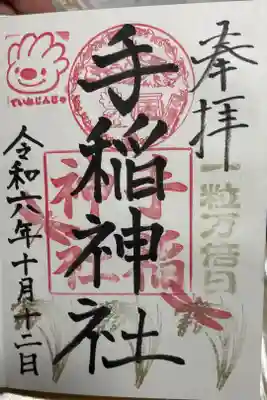 奉拝
一粒万倍日
手稲神社
手稲
神社
ていねじんじゃ
令和六年十月十二日